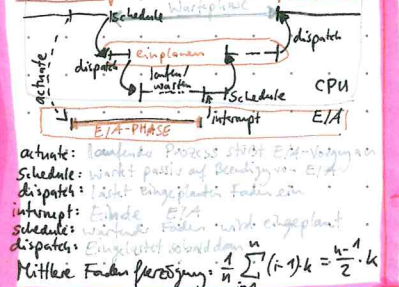 Wartephase
schedule
dispatch
einplanen
dispatch
laufen/
warten
actuate
schedule
CPU
interrupt
E/A
E/A-PHASE
actuate: laufender Prozess stößt E/A-Vorgang an
schedule: wartet passiv auf Beendigung von E/A
dispatch: lastet eingeplanten Faden ein
interrupt: Ende E/A
schedule: wartender Faden wird eingeplant
dispatch: Eingelastet sobald dran
Mittlere Fadenverzögerung: 1/n ∑ (i-1)·k = n-1/2 · k